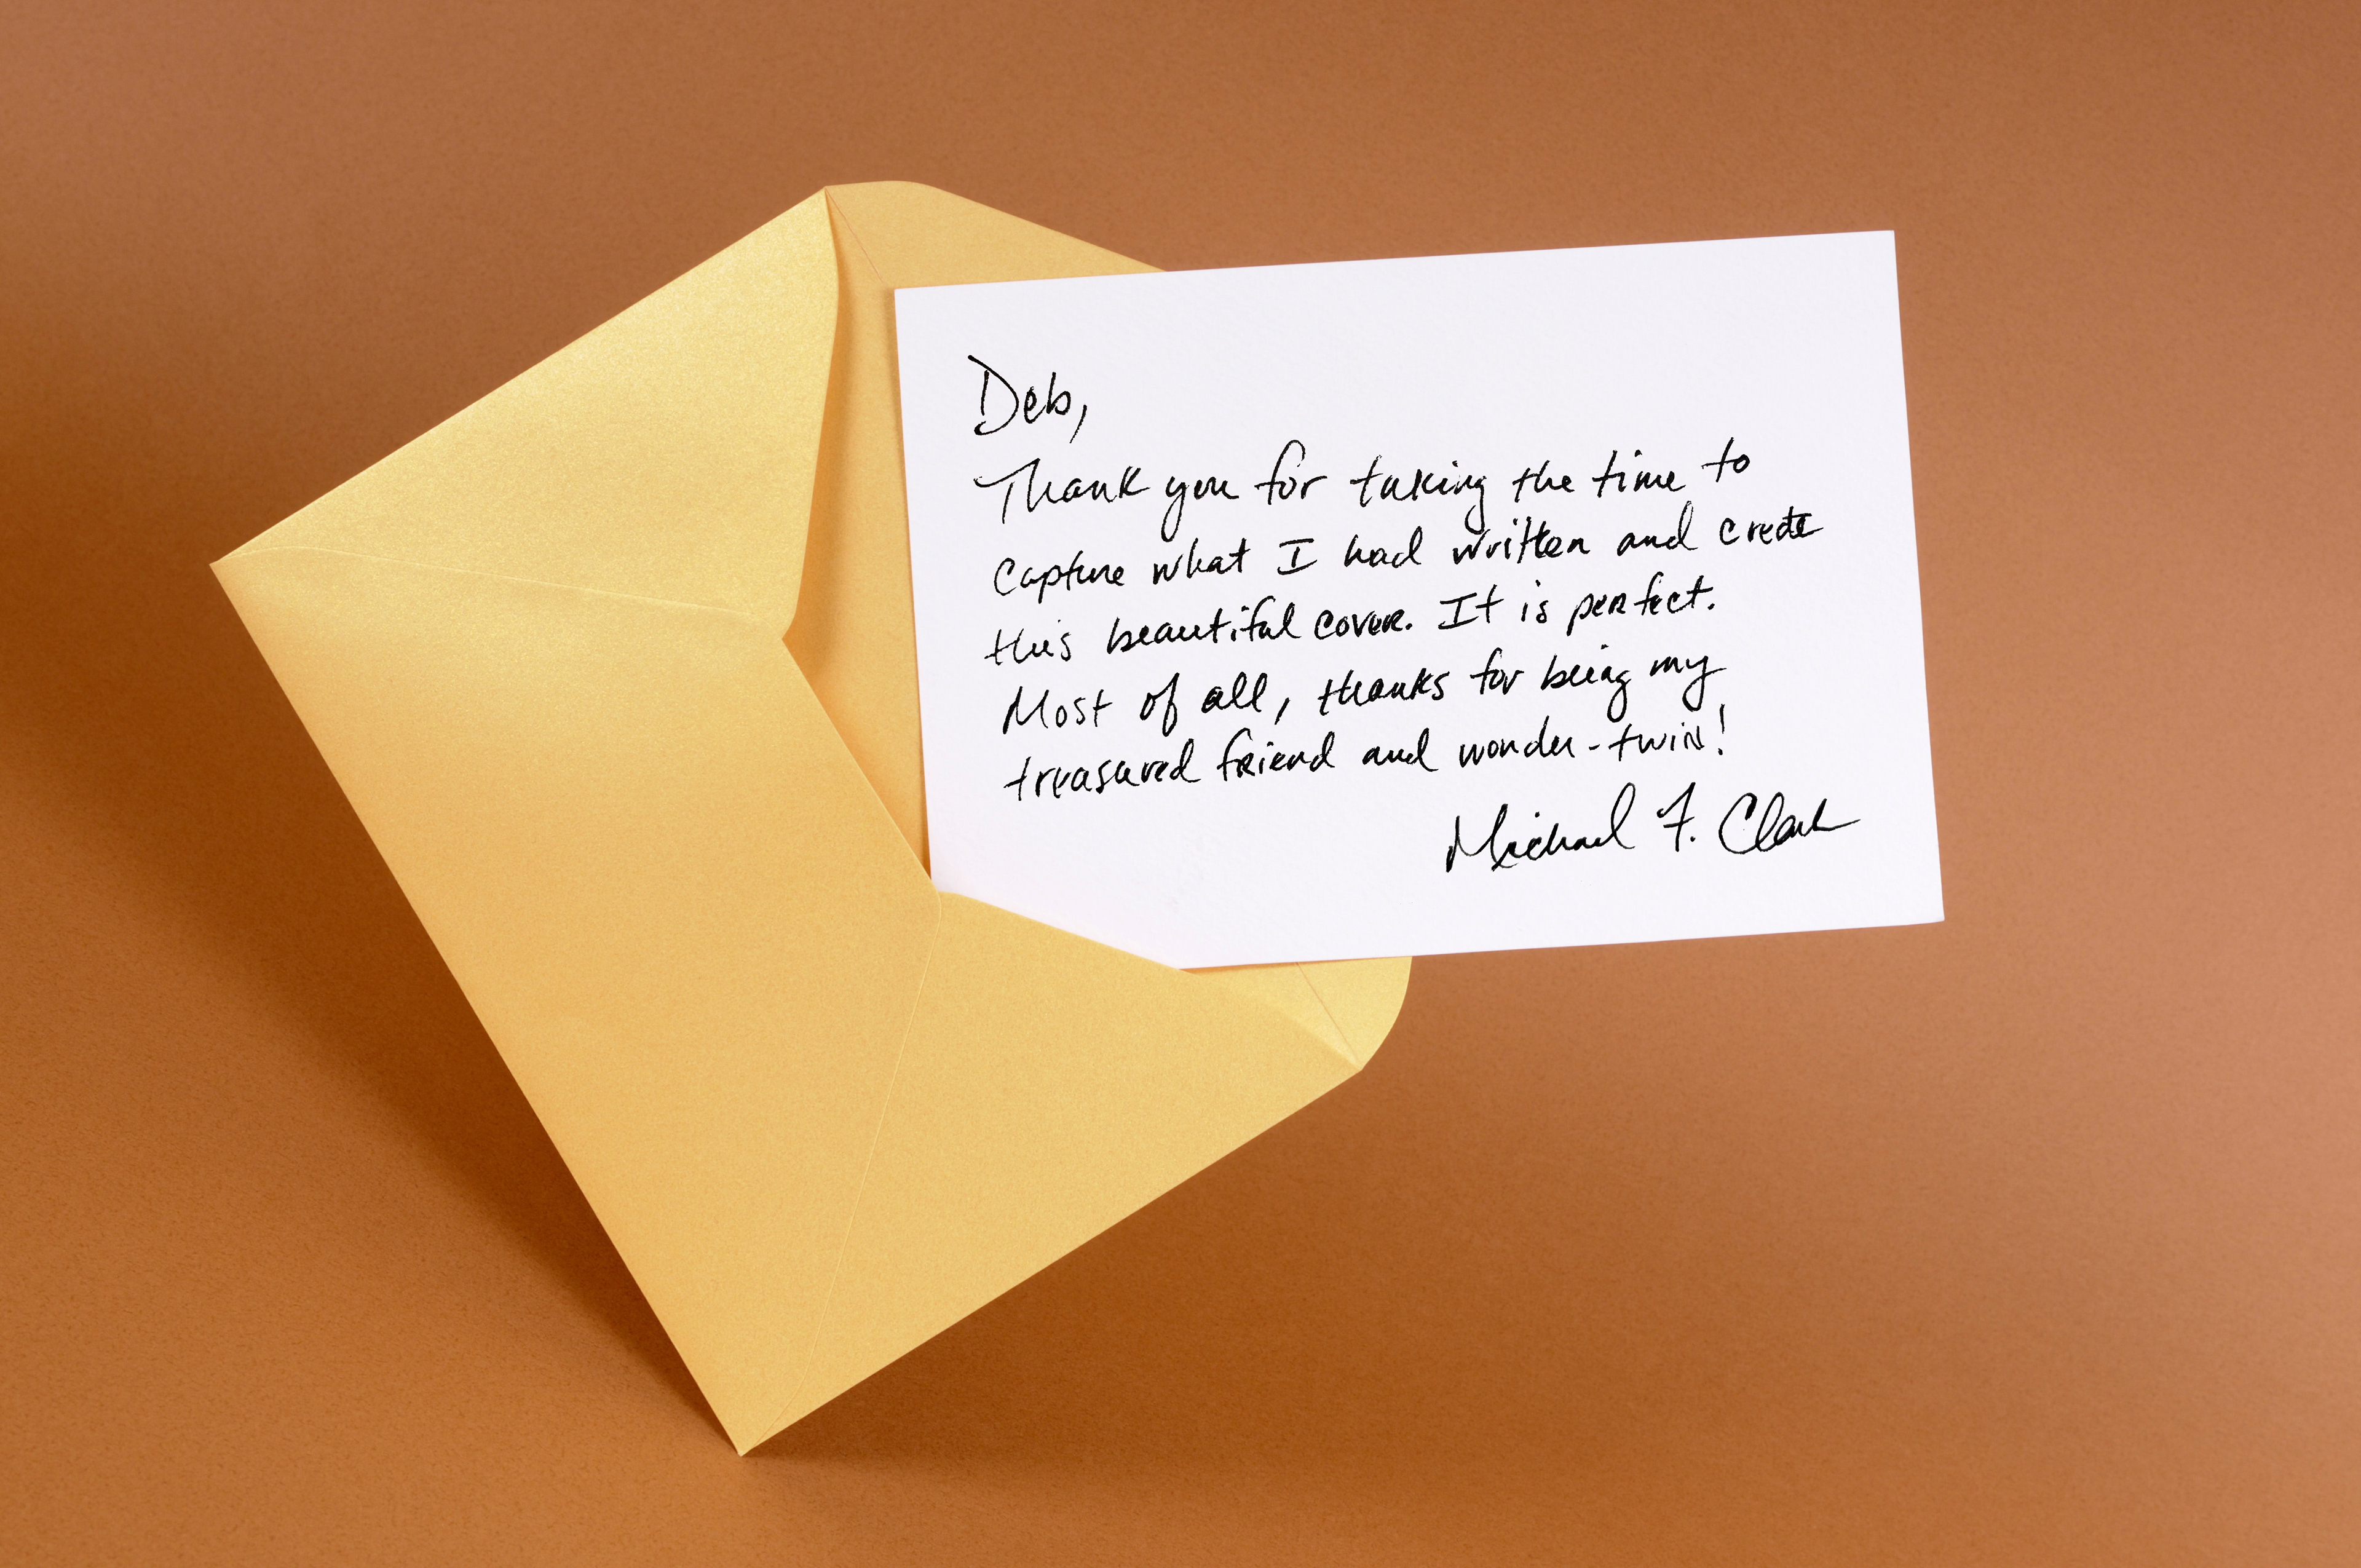 Deb,
Thank you for taking the time to
capture what I had written and create
this beautiful cover. It is perfect.
Most of all, thanks for being my
treasured friend and wonder-twin!
Michael F. Clark